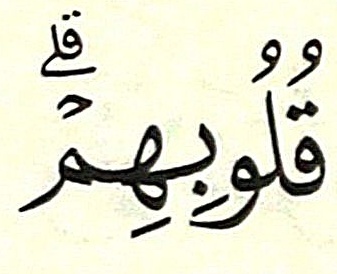 قُلُوبِهِمْۗ